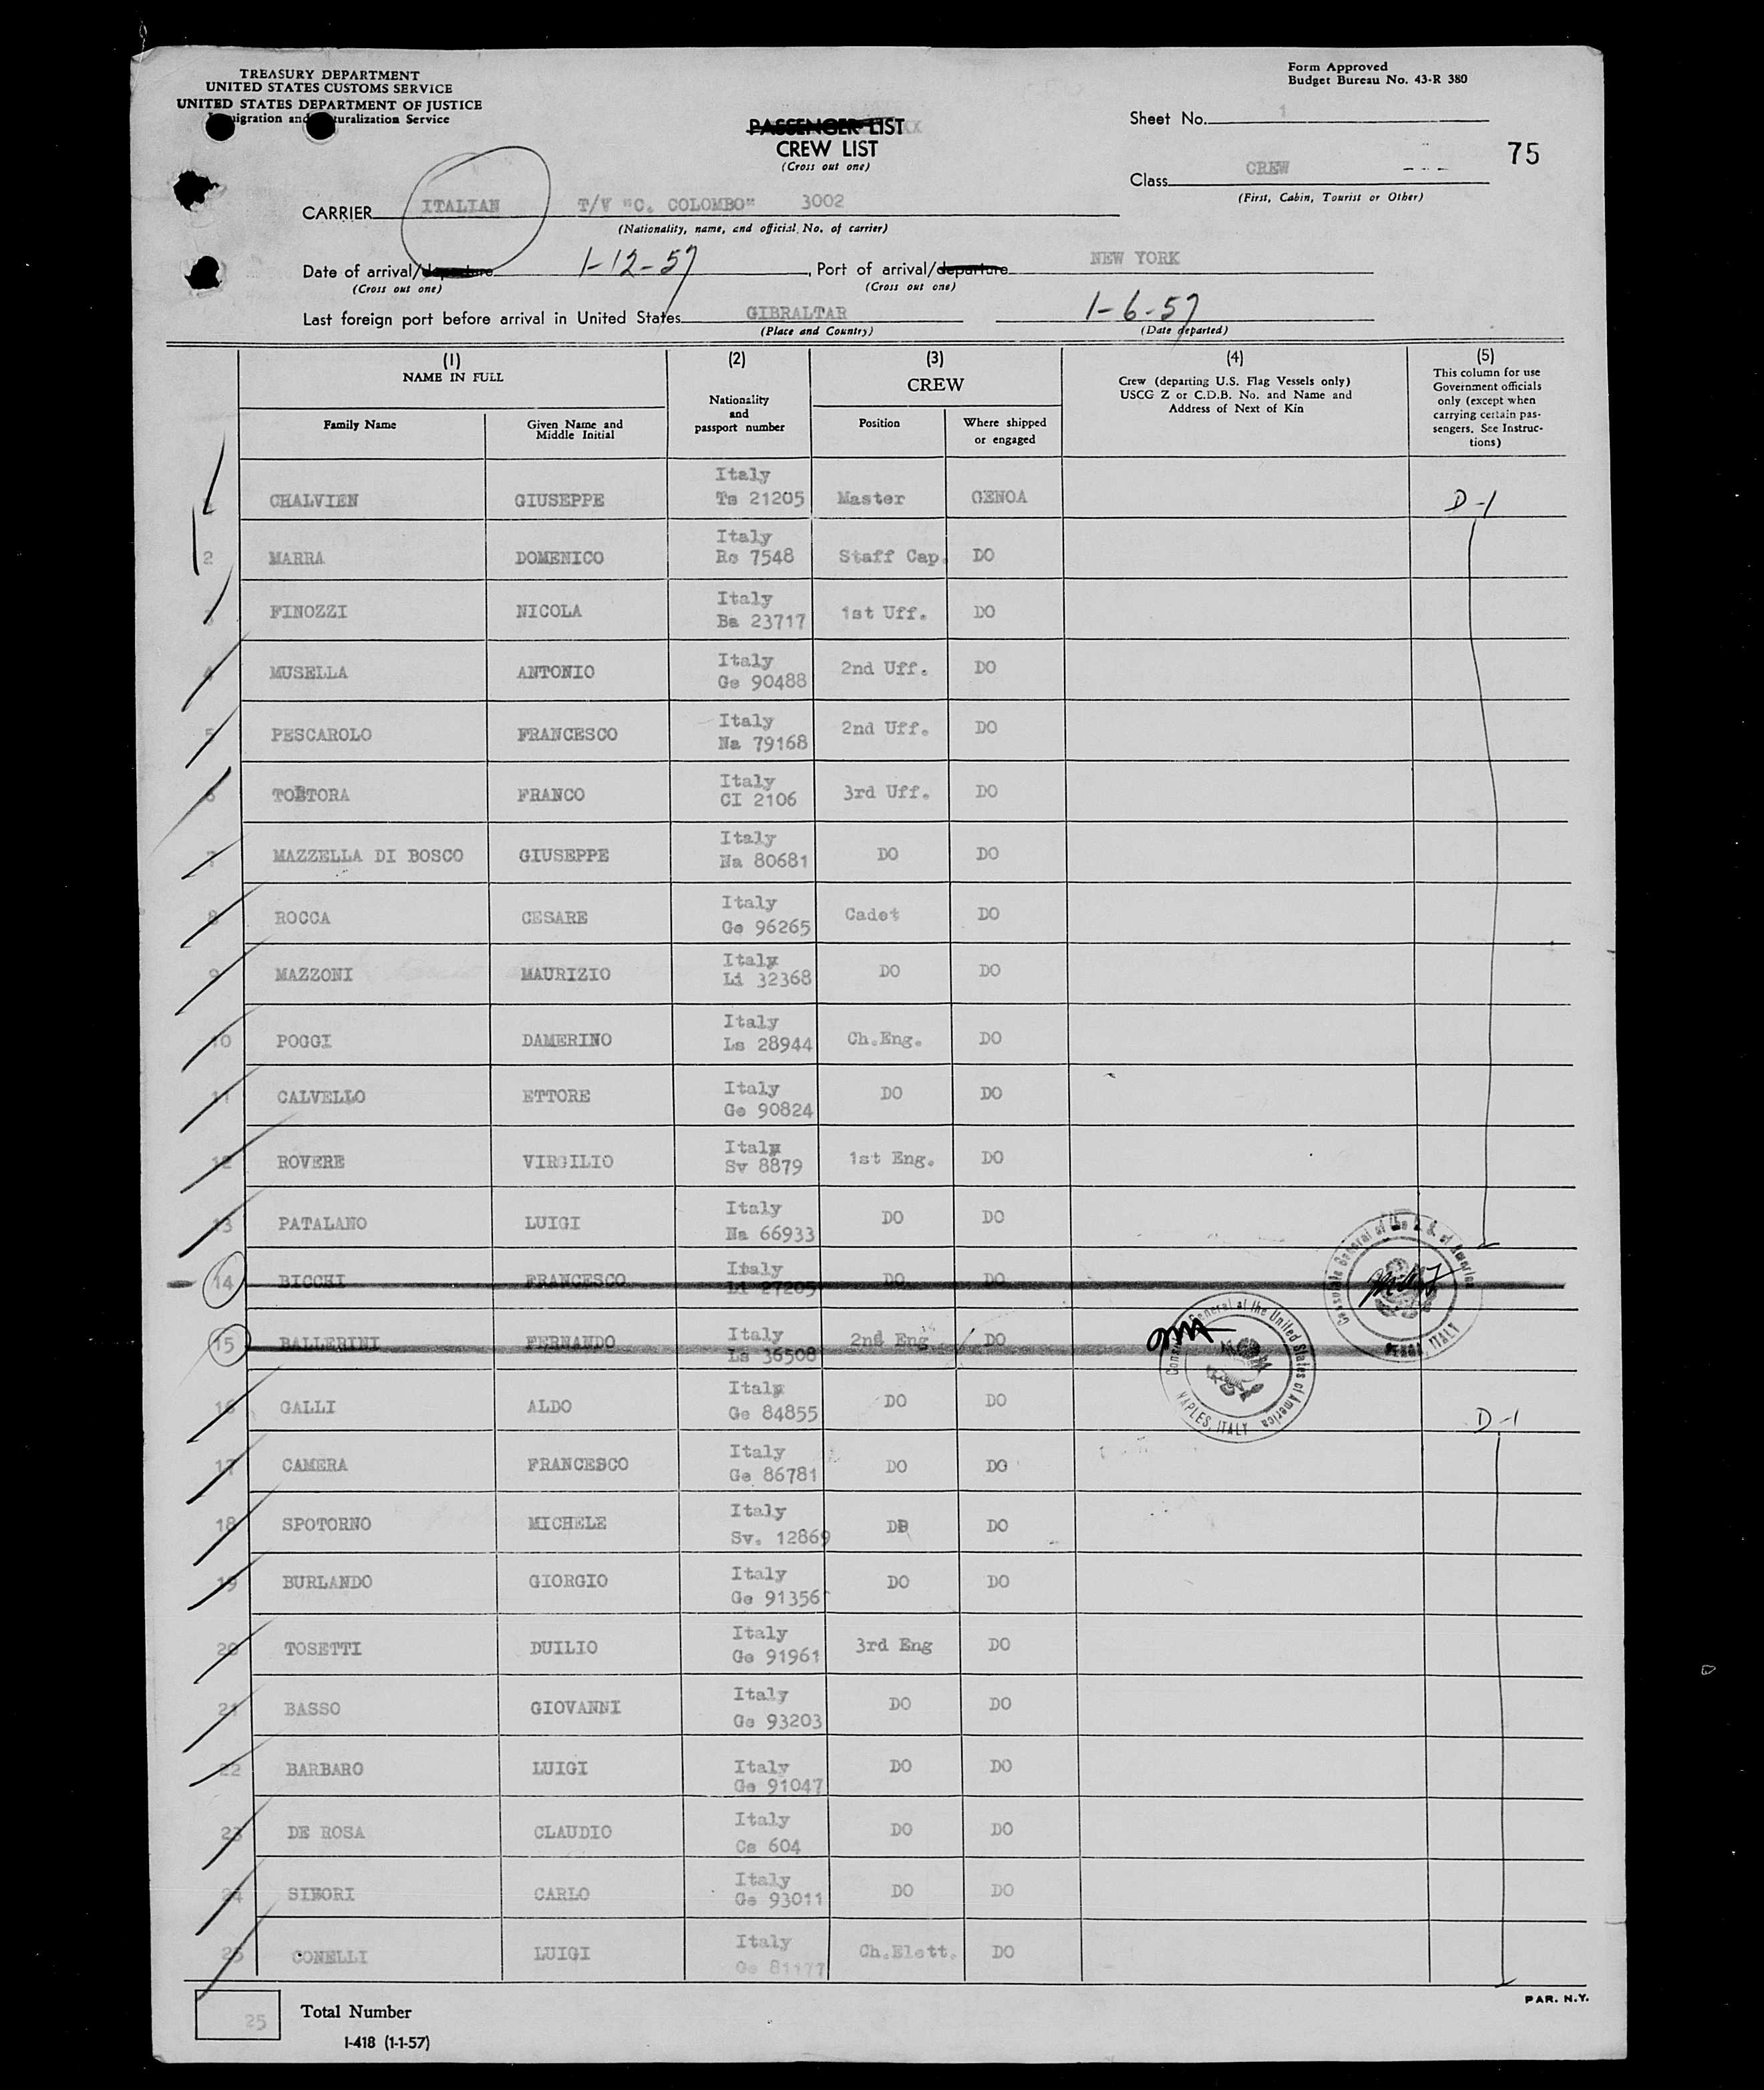 TREASURY DEPARTMENT
UNITED STATES CUSTOMS SERVICE
UNITED STATES DEPARTMENT OF JUSTICE
Immigration and Naturalization Service
Form Approved
Budget Bureau No. 43-R 380
PASSENGER LIST
CREW LIST
(Cross out one)
Sheet No. 1
75
Class CREW
(First, Cabin, Tourist or Other)
CARRIER ITALIAN T/V "C. COLOMBO" 3002
(Nationality, name, and official No. of carrier)
Date of arrival/departure 1-12-57, Port of arrival/departure NEW YORK
(Cross out one) (Cross out one)
Last foreign port before arrival in United States GIBRALTAR 1-6-57
(Place and Country) (Date departed)
(1) (2) (3) (4) (5)
NAME IN FULL
Family Name
Given Name and Middle Initial
Nationality and passport number
CREW
Position
Where shipped or engaged
Crew (departing U.S. Flag Vessels only)
USCG Z or C.D.B. No. and Name and
Address of Next of Kin
This column for use
Government officials
only (except when
carrying certain pas-
sengers. See Instruc-
tions)
CHALVIEN GIUSEPPE Italy Ts 21205 Master GENOA D-1
2 MARRA DOMENICO Italy Rc 7548 Staff Cap. DO
3 FINOZZI NICOLA Italy Ba 23717 1st Uff. DO
4 MUSELLA ANTONIO Italy Ge 90488 2nd Uff. DO
5 PESCAROLO FRANCESCO Italy Na 79168 2nd Uff. DO
6 TORTORA FRANCO Italy CI 2106 3rd Uff. DO
7 MAZZELLA DI BOSCO GIUSEPPE Italy Na 80681 DO DO
8 ROCCA CESARE Italy Ge 96265 Cadet DO
9 MAZZONI MAURIZIO Italy Li 32368 DO DO
10 POGGI DAMERINO Italy Ls 28944 Ch.Eng. DO
11 CALVELLO ETTORE Italy Ge 90824 DO DO
12 ROVERE VIRGILIO Italy Sv 8879 1st Eng. DO
13 PATALANO LUIGI Italy Na 66933 DO DO
14 BICCHI FRANCESCO Italy Li 27205 DO DO
15 BALLERINI FERNANDO Italy Ls 36508 2nd Eng DO
Consulate General of the U. S. of America
GENOA, ITALY
Consulate General of the United States of America
NAPLES, ITALY
16 GALLI ALDO Italy Ge 84855 DO DO D-1
17 CAMERA FRANCESCO Italy Ge 86781 DO DO
18 SPOTORNO MICHELE Italy Sv. 12869 DO DO
19 BURLANDO GIORGIO Italy Ge 91356 DO DO
20 TOSETTI DUILIO Italy Ge 91961 3rd Eng DO
21 BASSO GIOVANNI Italy Ge 93203 DO DO
22 BARBARO LUIGI Italy Ge 91047 DO DO
23 DE ROSA CLAUDIO Italy Cs 604 DO DO
24 CARLO Italy Ge 93011 DO DO
25 CONELLI LUIGI Italy Ge 81177 Ch.Elett. DO
25 Total Number
I-418 (1-1-57)
PAR. N.Y.